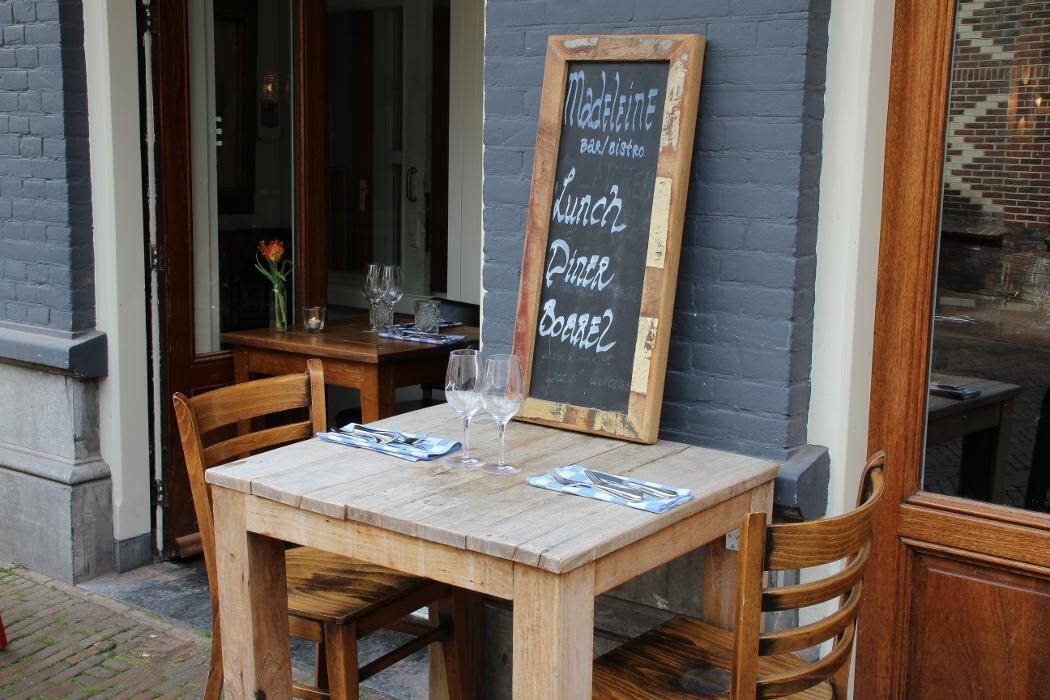 Madeleine
BAR/BISTRO
Lunch
Diner
Borrel